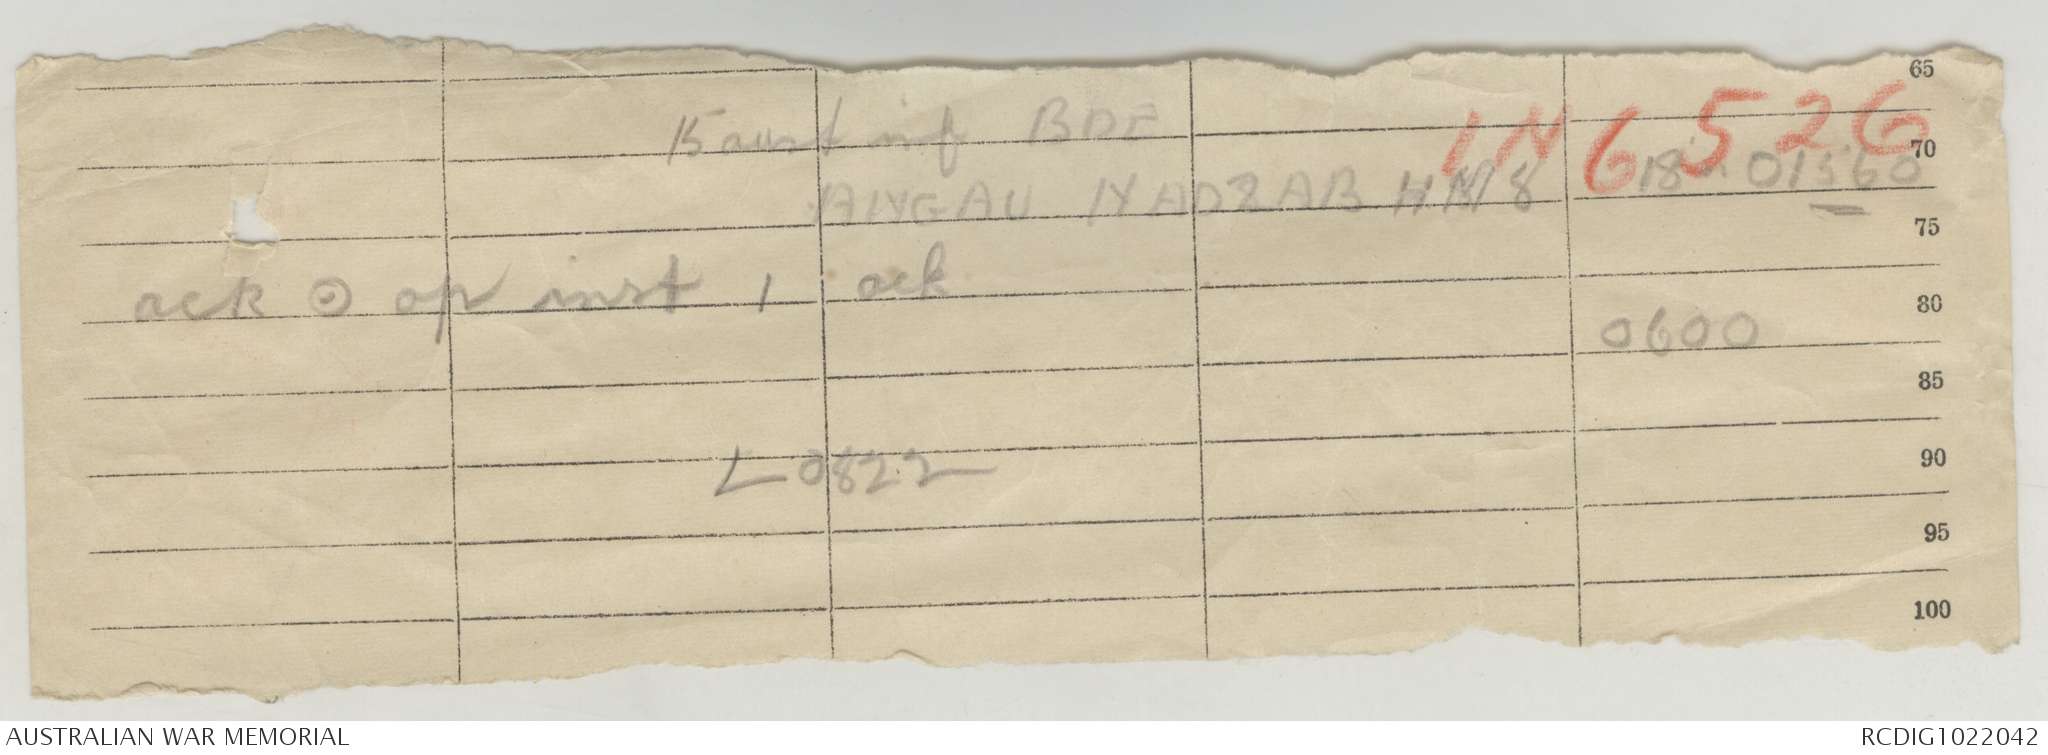 65
15 aust inf BDE IN 6 526
70
ANGAU NADZAB HN 8 18 01560
75
ack ⊙ op inst 1 ack
80
0600
85
L0822
90
95
100
AUSTRALIAN WAR MEMORIAL RCDIG1022042